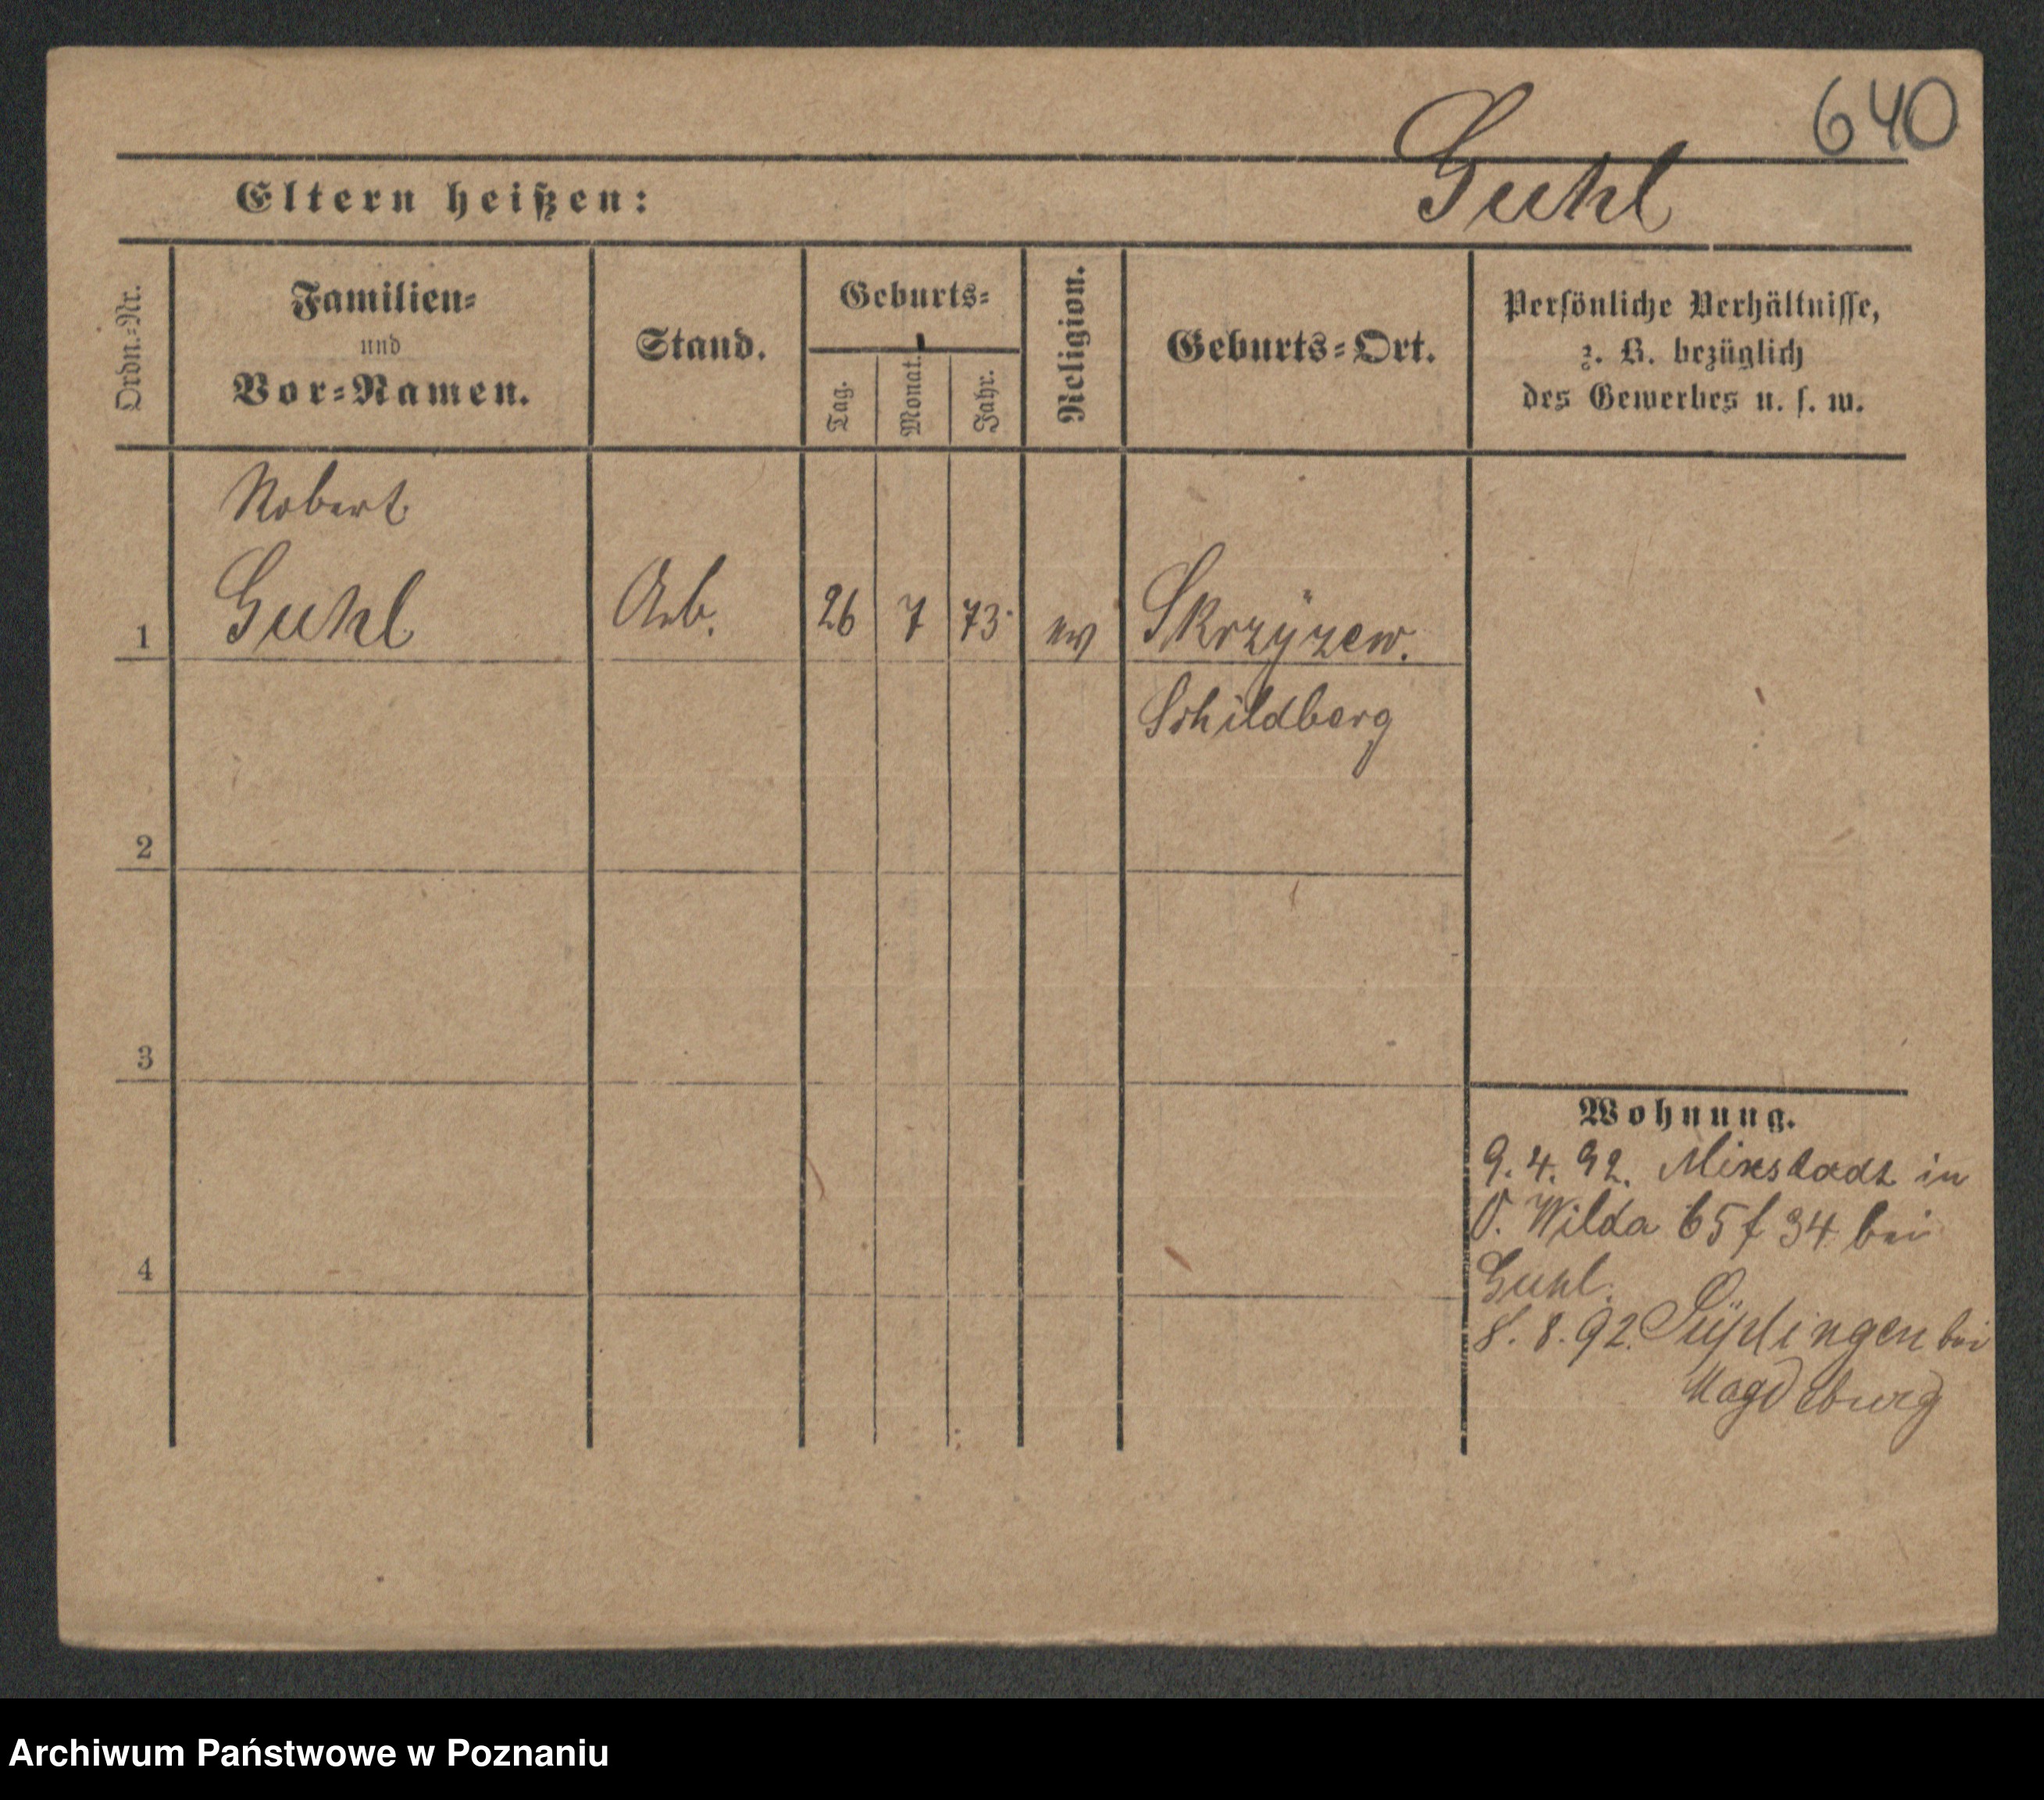 640
Guhl
Eltern heißen:
Ordn.=Nr.
Familien=
und
Vor=Namen.
Stand.
Geburts=
Tag.
Monat.
Jahr.
Religion.
Geburts=Ort.
Persönliche Verhältnisse,
z. B. bezüglich
des Gewerbes u. s. w.
Robert
1 Guhl Arb. 26 7 73 ev Skrzyzew.
Schildberg
2
3
4
Wohnung.
9. 4. 92. Mixstadt in
O. Wilda 65 f 34 bei
Guhl.
8. 8. 92. Süplingen bei
Magdeburg
Archiwum Państwowe w Poznaniu